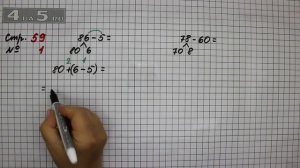 4 на 5.ru
Стр. 59
№ 1
86 - 5 =
80 6
2 1
80 + (6 - 5) =
=
78 - 60 =
70 8